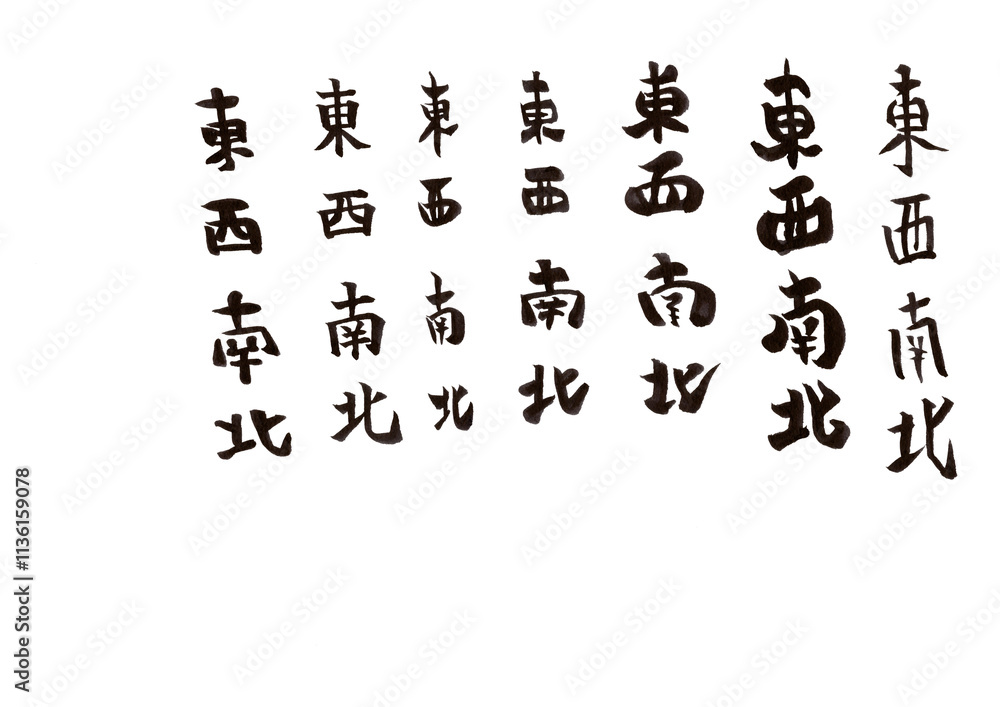 東西南北
東西南北
東西南北
東西南北
東西南北
東西南北
東西南北
Adobe Stock | #1136159078